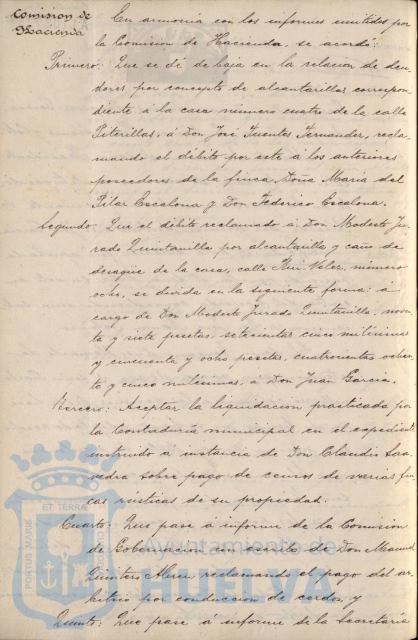 Comision de
Hacienda
En armonia con los informes emitidos por
la Comision de Hacienda, se acordó:
Primero: Que se dé de baja en la relacion de deu-
dores por concepto de alcantarillas correspon-
diente á la casa número cuatro de la calle
Piterillas, á Don José Fuentes Fernandez, recla-
mando el débito por este á los anteriores
poseedores de la finca, Doña Maria del
Pilar Escalona y Don Federico Escalona.
Segundo: Que el débito reclamado á Don Modesto Ju-
rado Quintanilla por alcantarilla y caño de
desague de la casa, calle Rui Velez, número
ocho, se divida en la siguiente forma: á
cargo de Don Modesto Jurado Quintanilla, noven-
ta y siete pesetas, setecientas cinco milésimas
y cincuenta y ocho pesetas, cuatrocientas ochen-
ta y cinco milésimas, á Don Juan Garcia.
Tercero: Aceptar la liquidacion practicada por
la Contaduria municipal en el expediente
instruido á instancia de Don Claudio Saa-
vedra sobre pago de censos de varias fin-
cas rústicas de su propiedad.
Cuarto: Que pase á informe de la Comision
de Gobernacion un escrito de Don Manuel
Quintero reclamando el pago del ar-
bitrio por conduccion de cerdos, y
Quinto: Que pase á informe de la Secretaria
PORTUS MARIS ET TERRAE
Ayuntamiento de
HUELVA